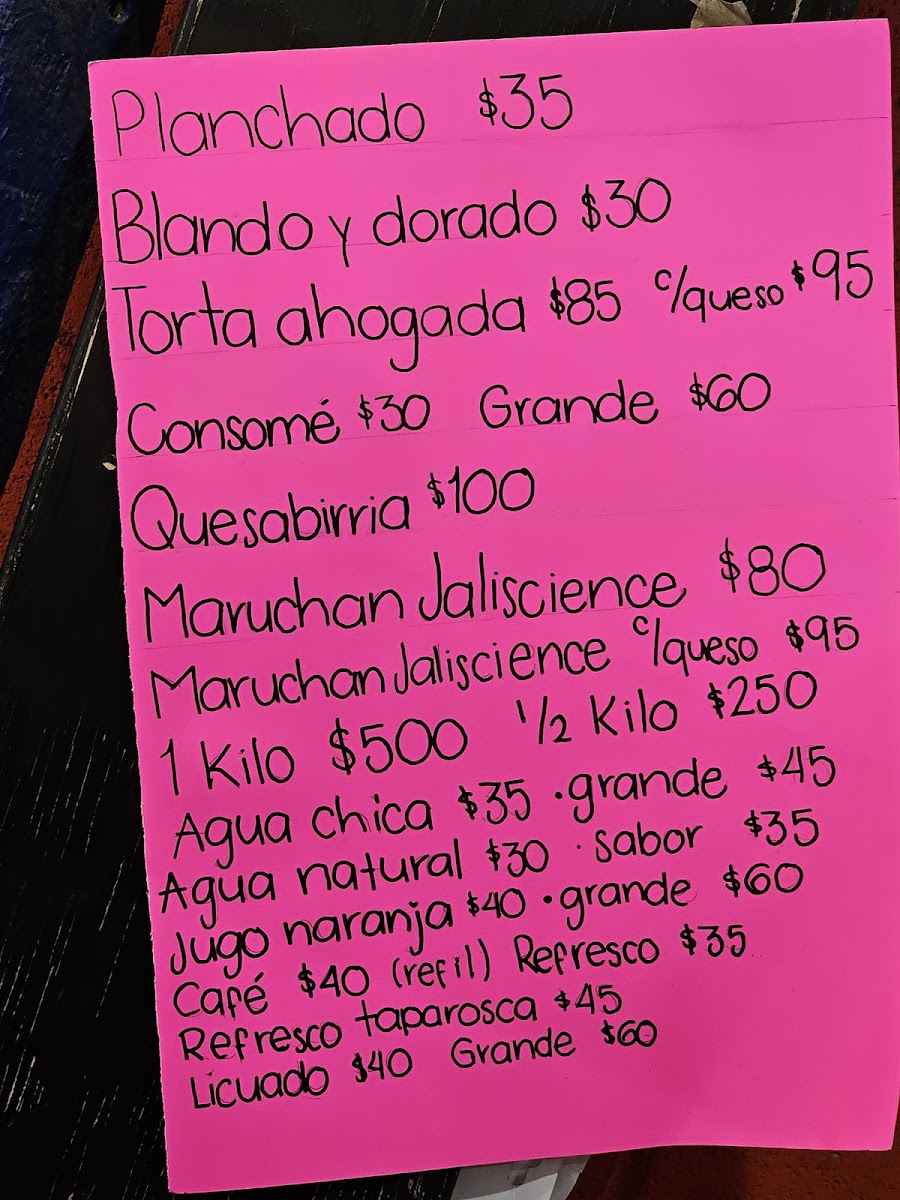 Planchado $35
Blando y dorado $30
Torta ahogada $85 c/queso $95
Consomé $30 Grande $60
Quesabirria $100
Maruchan Jaliscience $80
Maruchan Jaliscience c/queso $95
1 Kilo $500 1/2 Kilo $250
Agua chica $35 · grande $45
Agua natural $30 · sabor $35
Jugo naranja $40 · grande $60
Café $40 (refil) Refresco $35
Refresco taparosca $45
Licuado $40 Grande $60